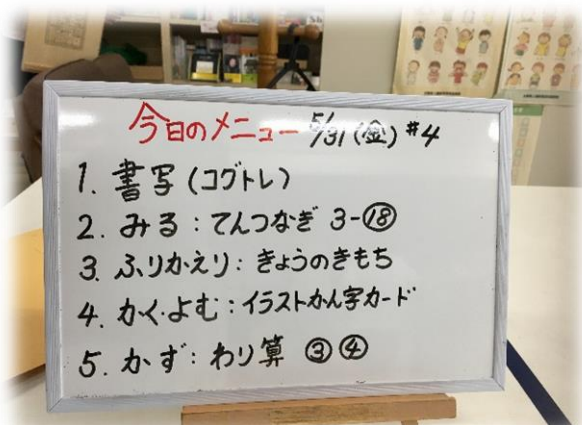 今日のメニュー 5/31(金) #4
1. 書写(コグトレ)
2. みる:てんつなぎ 3-⑱
3. ふりかえり:きょうのきもち
4. かく・よむ:イラストかん字カード
5. かず:わり算 ③ ④